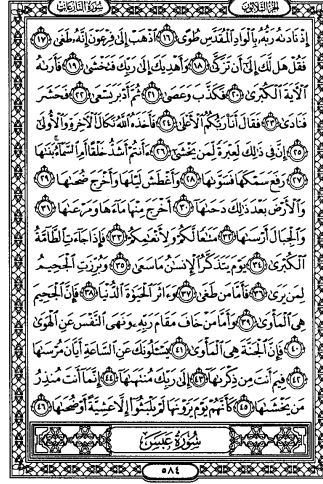 الجزء الثلاثون سورة النازعات
إِذْ نَادَىٰهُ رَبُّهُ بِالْوَادِ الْمُقَدَّسِ طُوًى ۝١٦ اذْهَبْ إِلَىٰ فِرْعَوْنَ إِنَّهُ طَغَىٰ ۝١٧
فَقُلْ هَل لَّكَ إِلَىٰ أَن تَزَكَّىٰ ۝١٨ وَأَهْدِيَكَ إِلَىٰ رَبِّكَ فَتَخْشَىٰ ۝١٩ فَأَرَىٰهُ
الْآيَةَ الْكُبْرَىٰ ۝٢٠ فَكَذَّبَ وَعَصَىٰ ۝٢١ ثُمَّ أَدْبَرَ يَسْعَىٰ ۝٢٢ فَحَشَرَ
فَنَادَىٰ ۝٢٣ فَقَالَ أَنَا رَبُّكُمُ الْأَعْلَىٰ ۝٢٤ فَأَخَذَهُ اللَّهُ نَكَالَ الْآخِرَةِ وَالْأُولَىٰ
۝٢٥ إِنَّ فِي ذَٰلِكَ لَعِبْرَةً لِّمَن يَخْشَىٰ ۝٢٦ ءَأَنتُمْ أَشَدُّ خَلْقًا أَمِ السَّمَاءُ بَنَىٰهَا
۝٢٧ رَفَعَ سَمْكَهَا فَسَوَّىٰهَا ۝٢٨ وَأَغْطَشَ لَيْلَهَا وَأَخْرَجَ ضُحَىٰهَا ۝٢٩
وَالْأَرْضَ بَعْدَ ذَٰلِكَ دَحَىٰهَا ۝٣٠ أَخْرَجَ مِنْهَا مَاءَهَا وَمَرْعَىٰهَا ۝٣١
وَالْجِبَالَ أَرْسَىٰهَا ۝٣٢ مَتَاعًا لَّكُمْ وَلِأَنْعَامِكُمْ ۝٣٣ فَإِذَا جَاءَتِ الطَّامَّةُ
الْكُبْرَىٰ ۝٣٤ يَوْمَ يَتَذَكَّرُ الْإِنسَٰنُ مَا سَعَىٰ ۝٣٥ وَبُرِّزَتِ الْجَحِيمُ
لِمَن يَرَىٰ ۝٣٦ فَأَمَّا مَن طَغَىٰ ۝٣٧ وَءَاثَرَ الْحَيَوٰةَ الدُّنْيَا ۝٣٨ فَإِنَّ الْجَحِيمَ
هِيَ الْمَأْوَىٰ ۝٣٩ وَأَمَّا مَنْ خَافَ مَقَامَ رَبِّهِ وَنَهَى النَّفْسَ عَنِ الْهَوَىٰ
۝٤٠ فَإِنَّ الْجَنَّةَ هِيَ الْمَأْوَىٰ ۝٤١ يَسْـَٔلُونَكَ عَنِ السَّاعَةِ أَيَّانَ مُرْسَىٰهَا
۝٤٢ فِيمَ أَنتَ مِن ذِكْرَىٰهَا ۝٤٣ إِلَىٰ رَبِّكَ مُنتَهَىٰهَا ۝٤٤ إِنَّمَا أَنتَ مُنذِرُ
مَن يَخْشَىٰهَا ۝٤٥ كَأَنَّهُمْ يَوْمَ يَرَوْنَهَا لَمْ يَلْبَثُوا إِلَّا عَشِيَّةً أَوْ ضُحَىٰهَا ۝٤٦
سورة عبس
٥٨٤